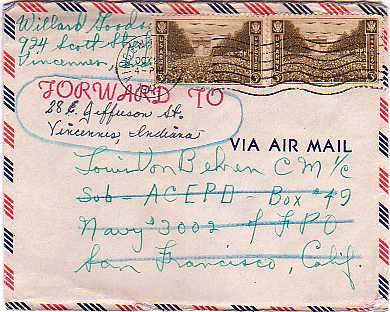 Willard Goodso
924 Scott St
Vincennes,
FORWARD TO
28 E. Jefferson St.
Vincennes, Indiana
VIA AIR MAIL
Louis Von Behren CM 1/c
Sub- ACEPD- Box #49
Navy 3002 % FPO
San Francisco, Calif.